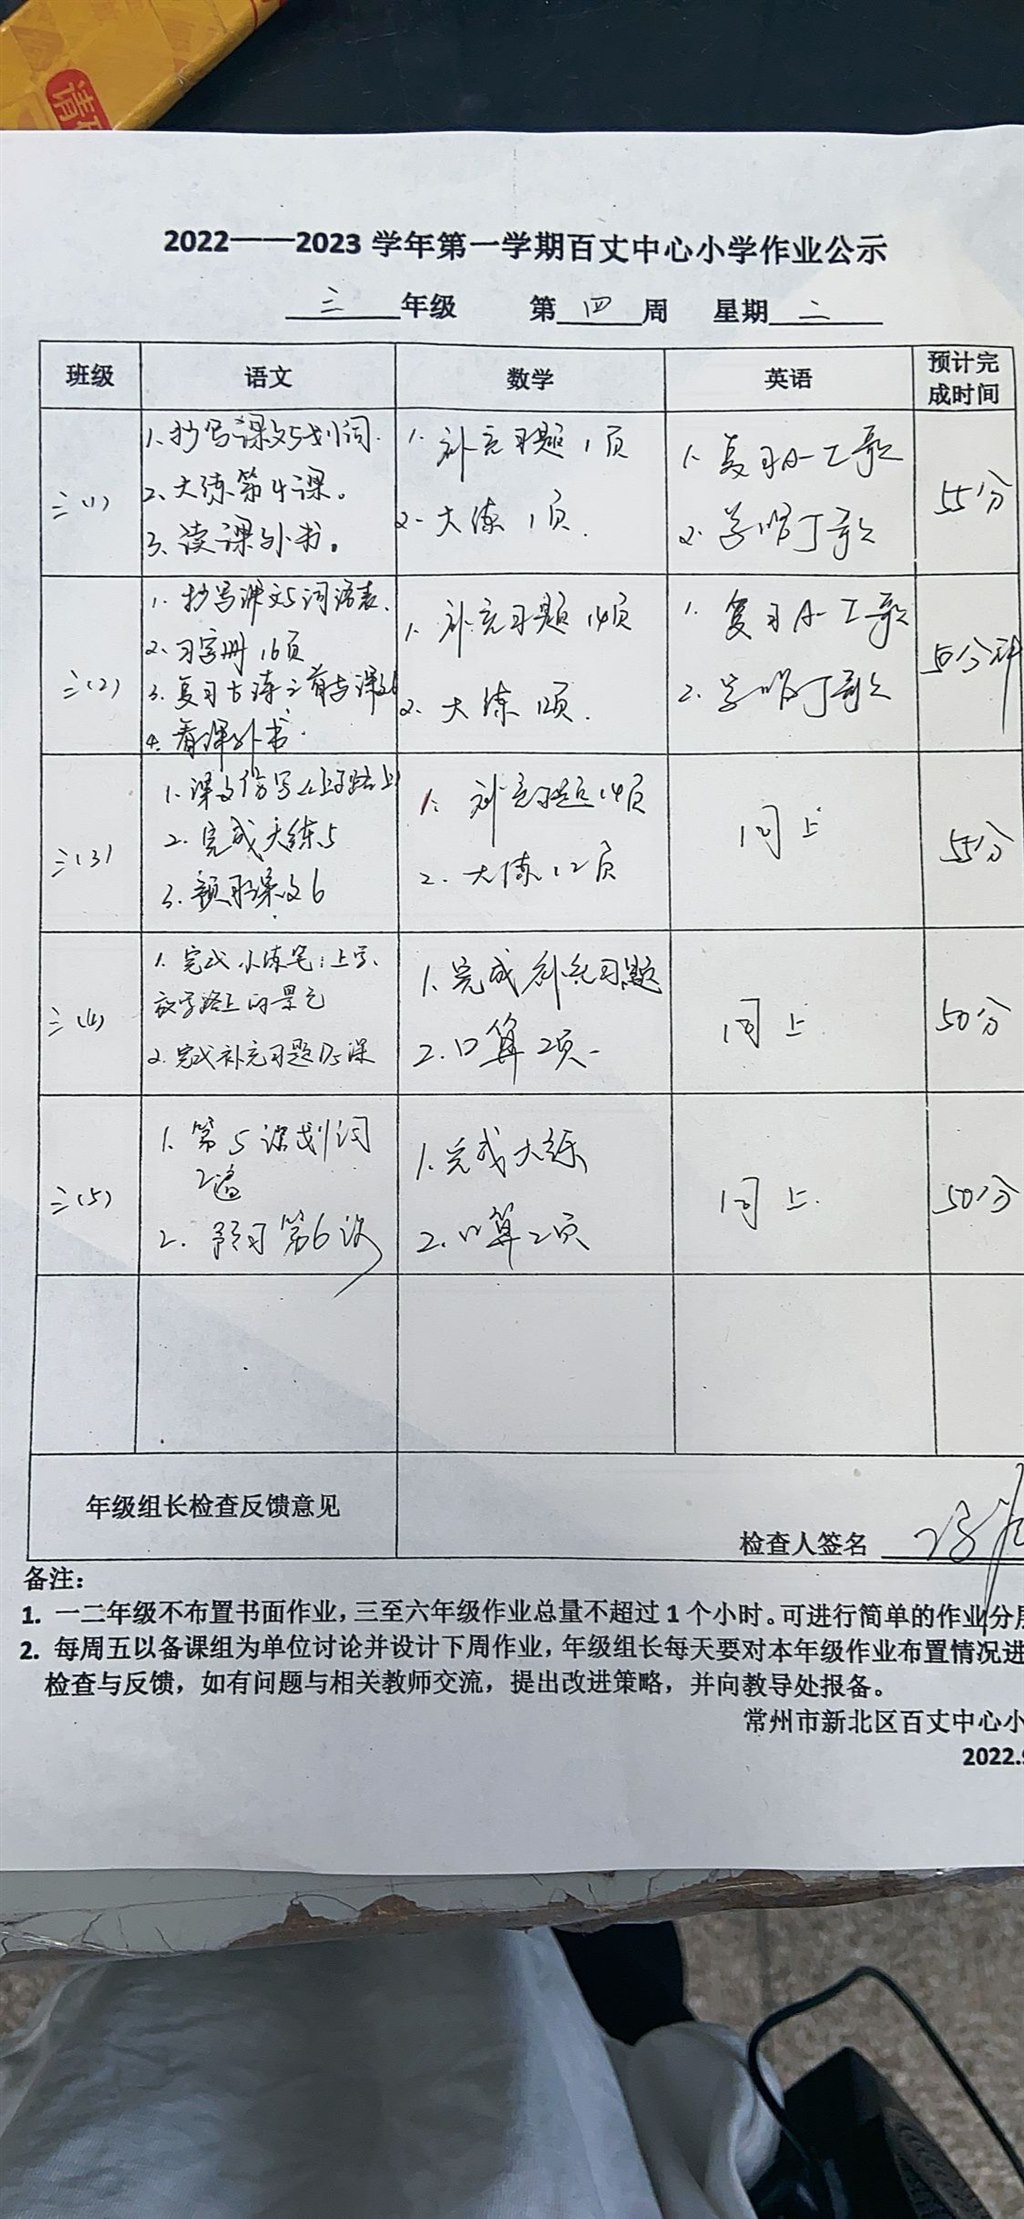 请
2022——2023 学年第一学期百丈中心小学作业公示
三 年级 第 四 周 星期 二
班级 语文 数学 英语 预计完成时间
三(1)
1. 抄写课文5划词.
2. 大练第4课。
3. 读课外书。
1. 补充习题 1页
2. 大练 1页.
1. 复习A-I歌
2. 学唱J歌
55分
三(2)
1. 抄写课文5词语表.
2. 习字册 16页
3. 复习古诗三首与课文
4. 看课外书.
1. 补充习题 14页
2. 大练 12页.
1. 复习A-I歌
2. 学唱J歌
50分钟
三(3)
1. 课文仿写《上学路上》
2. 完成大练5
3. 预习课文6
1. 补充习题14页
2. 大练12页
同上
55分
三(4)
1. 完成小练笔:上学、
放学路上的景色
2. 完成补充习题5课
1. 完成补充习题
2. 口算2页.
同上
50分
三(5)
1. 第5课划词
2遍
2. 预习第6课
1. 完成大练
2. 口算2页
同上.
50分
年级组长检查反馈意见
检查人签名
备注:
1. 一二年级不布置书面作业,三至六年级作业总量不超过1个小时。可进行简单的作业分
2. 每周五以备课组为单位讨论并设计下周作业,年级组长每天要对本年级作业布置情况进
检查与反馈,如有问题与相关教师交流,提出改进策略,并向教导处报备。
常州市新北区百丈中心小
2022.